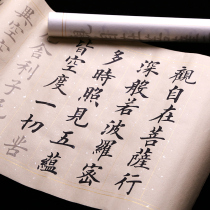 觀自在菩薩行
深般若波羅蜜
多時照見五蘊
皆空度一切
舍利子色
異空空